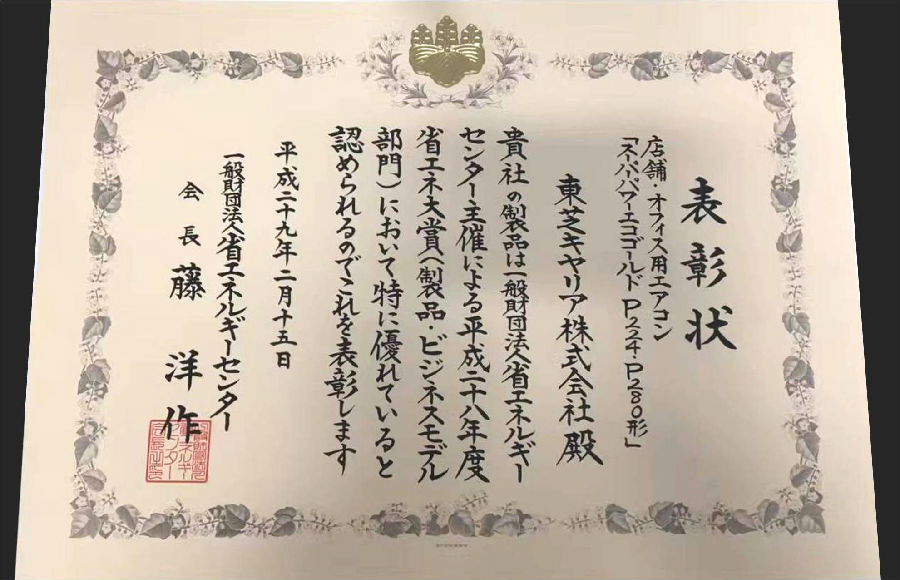 表彰状
店舗・オフィス用エアコン
「スーパーパワーエコゴールド P224・P280形」
東芝キヤリア株式会社 殿
貴社の製品は一般財団法人省エネルギー
センター主催による平成二十八年度
省エネ大賞(製品・ビジネスモデル
部門)において特に優れていると
認められるのでこれを表彰します
平成二十九年二月十五日
一般財団法人省エネルギーセンター
会長 藤 洋作